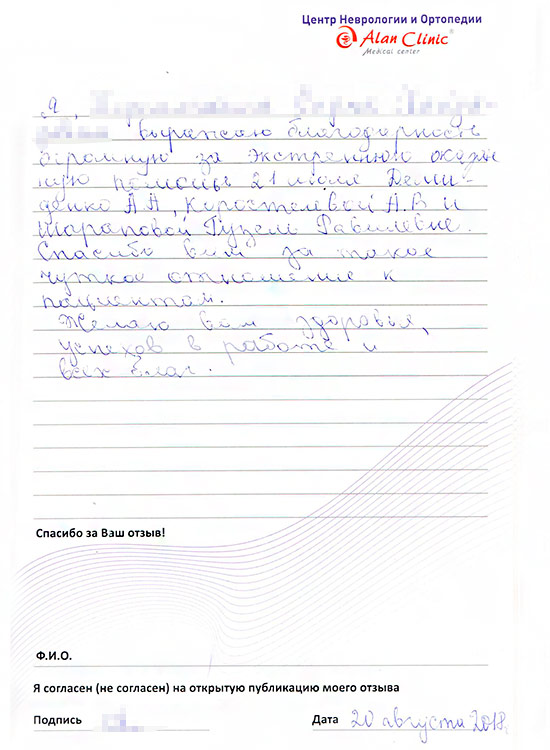 Центр Неврологии и Ортопедии
Alan Clinic®
Medical center
Я,
выражаю благодарность
огромную за экстренную оказан
ную помощь 21 июля Деми-
денко А А, Коростелевой А.В и
Шараповой Гузель Равилевне.
Спасибо вам за такое
чуткое отношение к
пациентам.
Желаю вам здоровья,
успехов в работе и
всех благ.
Спасибо за Ваш отзыв!
Ф.И.О.
Я согласен (не согласен) на открытую публикацию моего отзыва
Подпись
Дата 20 августа 2018г